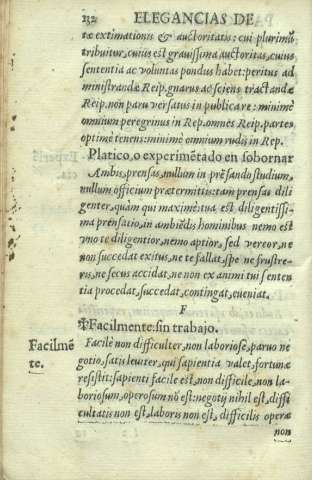 232 ELEGANCIAS DE
tæ extimationis & auctoritatis: cui plurimũ
tribuitur, cuius est grauissima auctoritas, cuius
sententia ac voluntas pondus habet: peritus ad
ministrandæ Reip. gnarus ac sciens tractandæ
Reip. non parũ versatus in publica re: minimè
omnium peregrinus in Rep. omnes Reip. partes
optimè tenens: minimè omnium rudis in Rep.
Platico, o experimẽtado en sobornar
Ambis, prensas, nullum in prẽsando studium,
nullum officium prætermittis: tam prensas dili
genter, quàm qui maximè: tua est diligentissi-
ma prensatio, in ambiẽdis hominibus nemo est
vno te diligentior, nemo aptior, sed vereor, ne
non succedat exitus, ne te fallat, spe ne frustre-
ris, ne secus accidat, ne non ex animi tui senten
tia procedat, succedat, contingat, eueniat.
F
✠Facilmente: sin trabajo.
Facilmẽ
te.
Facilè non difficulter, non laboriosè, paruo ne
gotio, satis leuiter, qui sapientia valet, fortunæ
resistit: sapienti facile est, non difficile, non la-
boriosum, operosum nõ est: negotij nihil est, diffi
cultatis non est, laboris non est, difficilis operæ
non